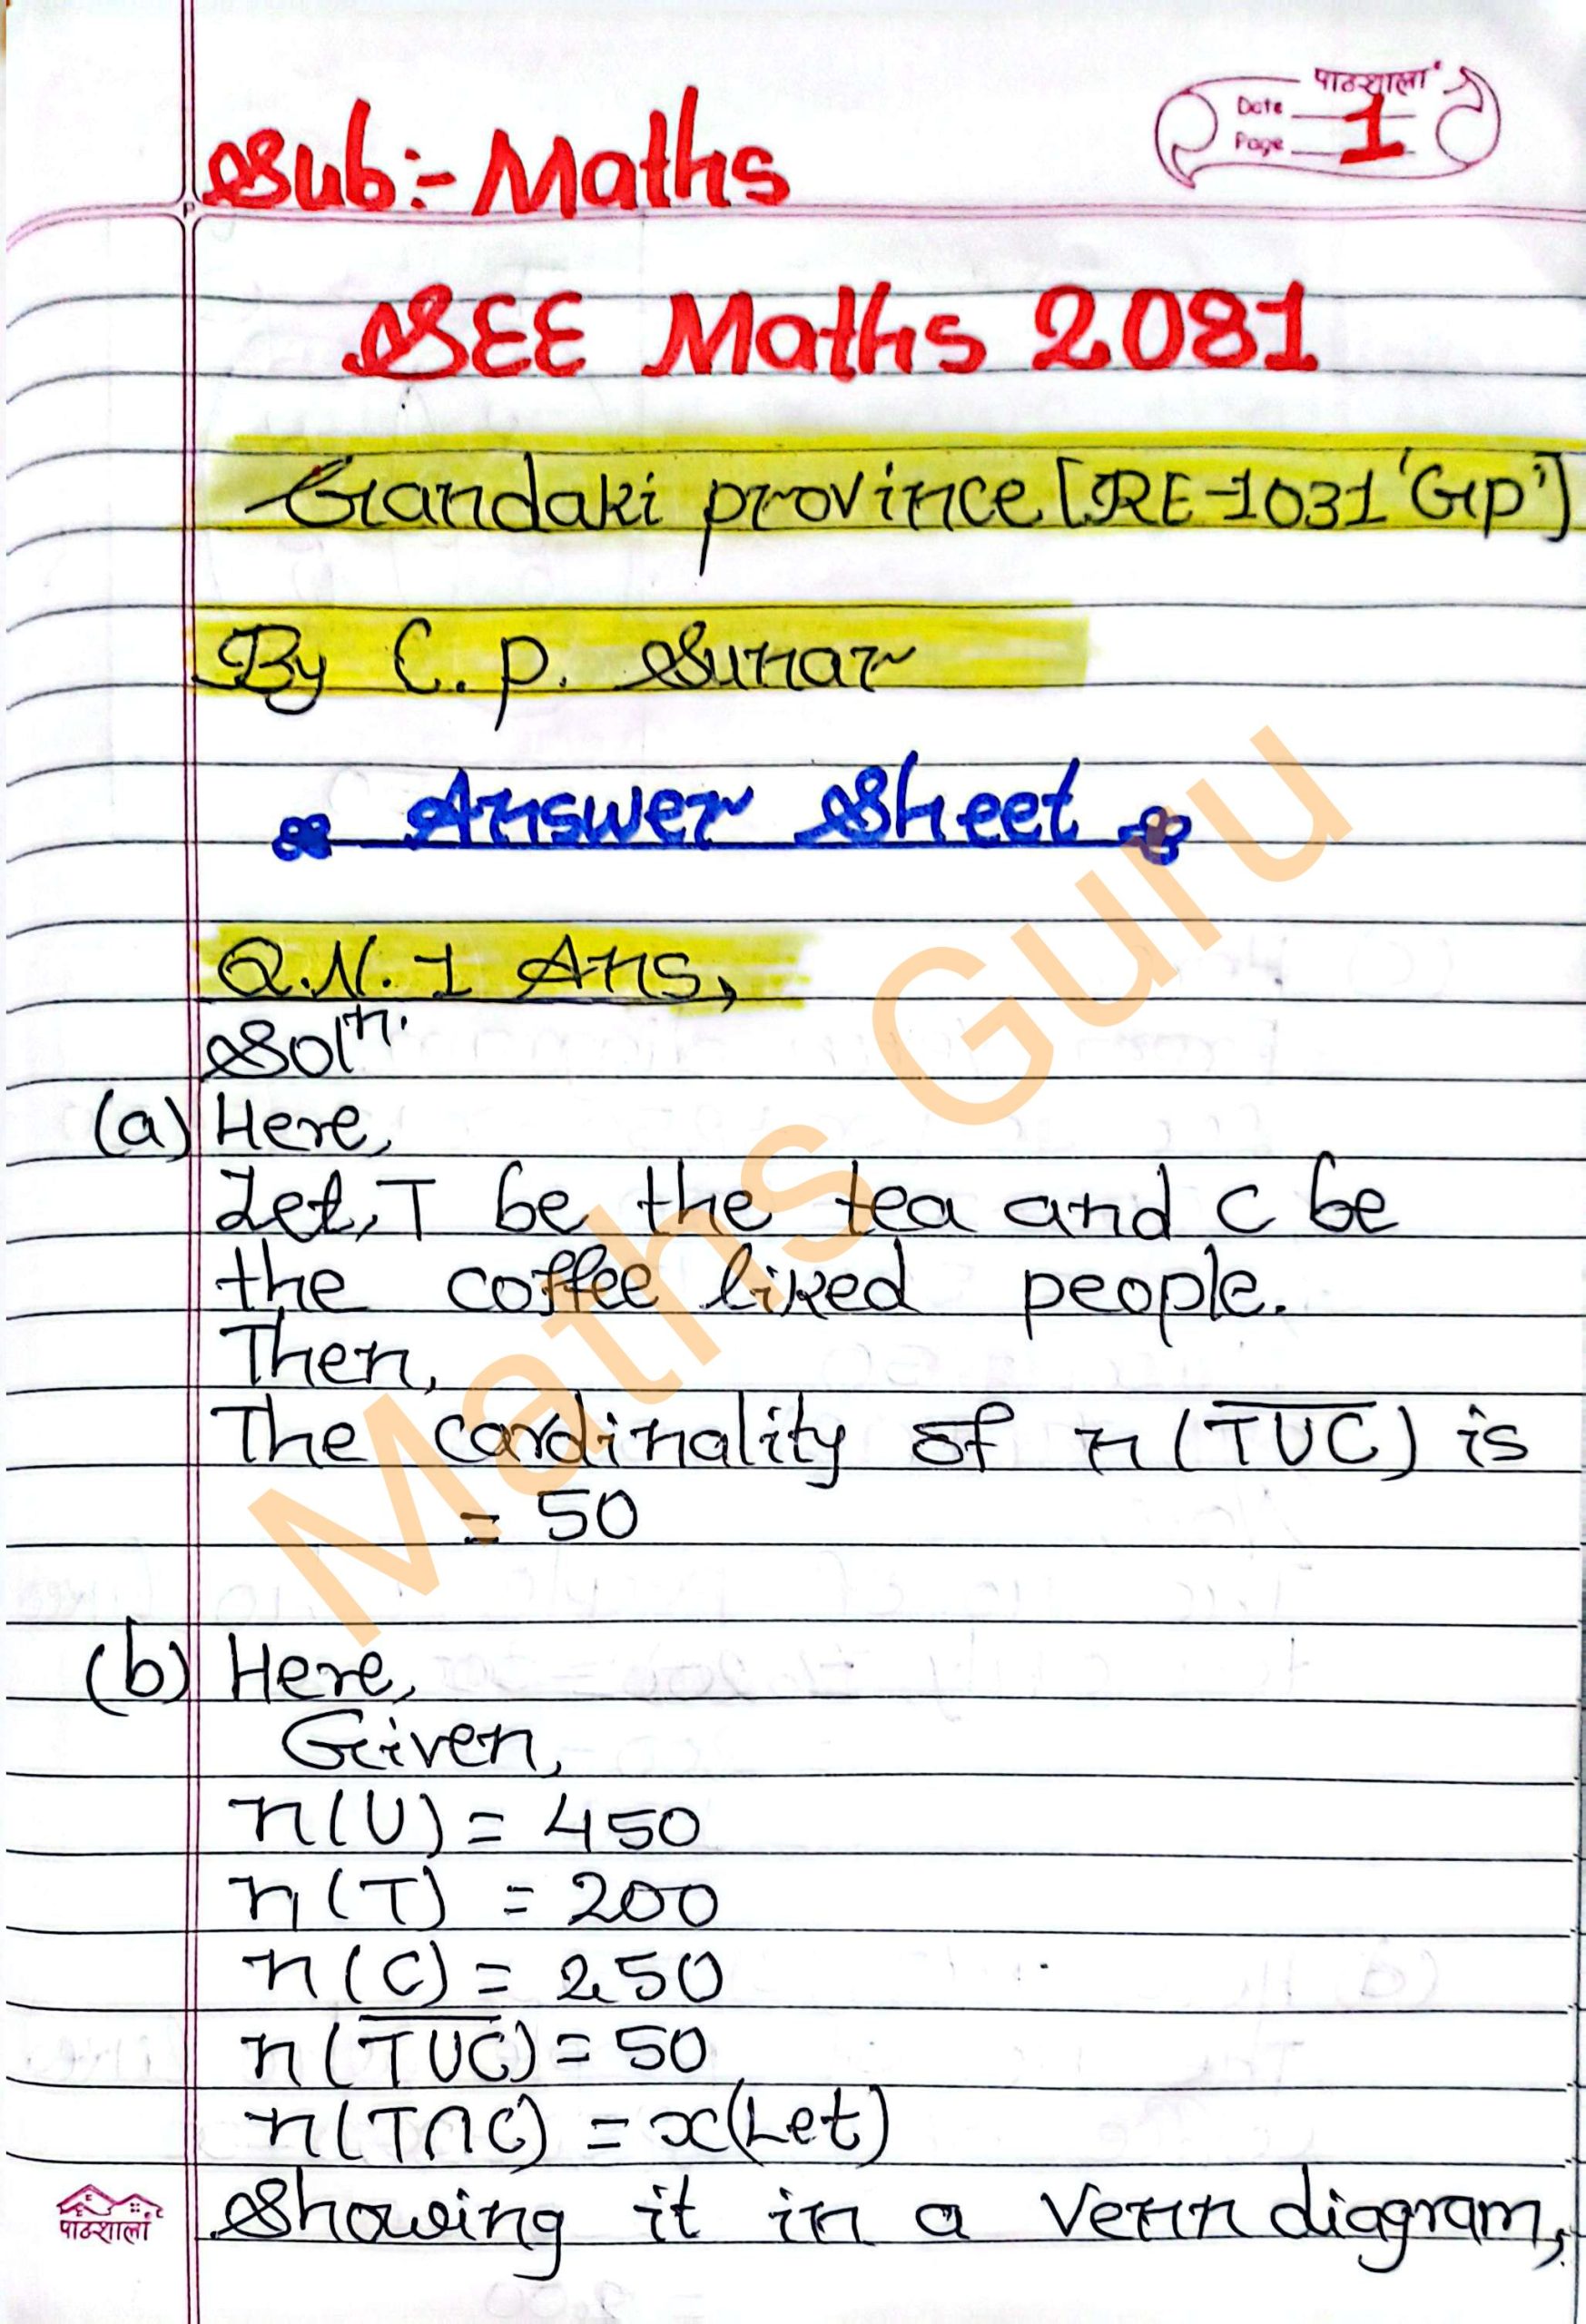 पाठशाला
Date
Page 1
Sub:- Maths
SEE Maths 2081
Gandaki province [RE-1031 'GP']
By C. P. Sunar
Answer Sheet
Q.N. 1 Ans,
Solⁿ.
(a) Here,
Let, T be the tea and C be
the coffee liked people.
Then,
The cardinality of n(T̅U̅C̅) is
= 50
(b) Here,
Given,
n(U) = 450
n(T) = 200
n(C) = 250
n(T̅U̅C̅) = 50
n(T∩C) = x(Let)
Showing it in a Venn diagram,
पाठशाला
Maths Guru